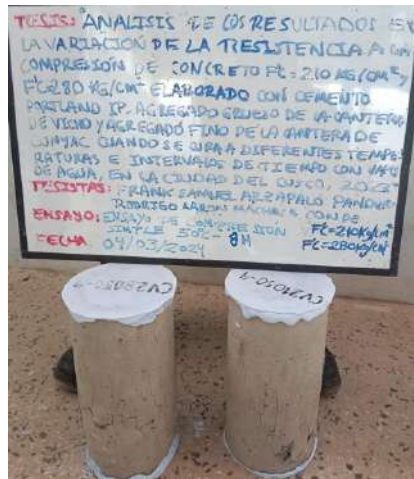 TESIS: "ANALISIS DE LOS RESULTADOS EN
LA VARIACION DE LA RESISTENCIA A LA
COMPRESIÓN DE CONCRETO F'C=210 KG/CM² Y
F'C=280 KG/CM² ELABORADO CON CEMENTO
PORTLAND IP, AGREGADO GRUESO DE LA CANTERA
DE VICHO Y AGREGADO FINO DE LA CANTERA DE
CUNYAC CUANDO SE CURA A DIFERENTES TEMPE-
RATURAS E INTERVALOS DE TIEMPO CON VAPOR
DE AGUA, EN LA CIUDAD DEL CUSCO, 2022"
TESISTAS: FRANK SAMUEL ARZAPALO PANDURO
RODRIGO CONDE
ENSAYO: ENSAYO DE COMPRESIÓN F'C=210Kg/cm²
SIMPLE 50°C - 8H F'C=280Kg/cm²
FECHA 04/03/2024
CV28050-4
CV21050-4